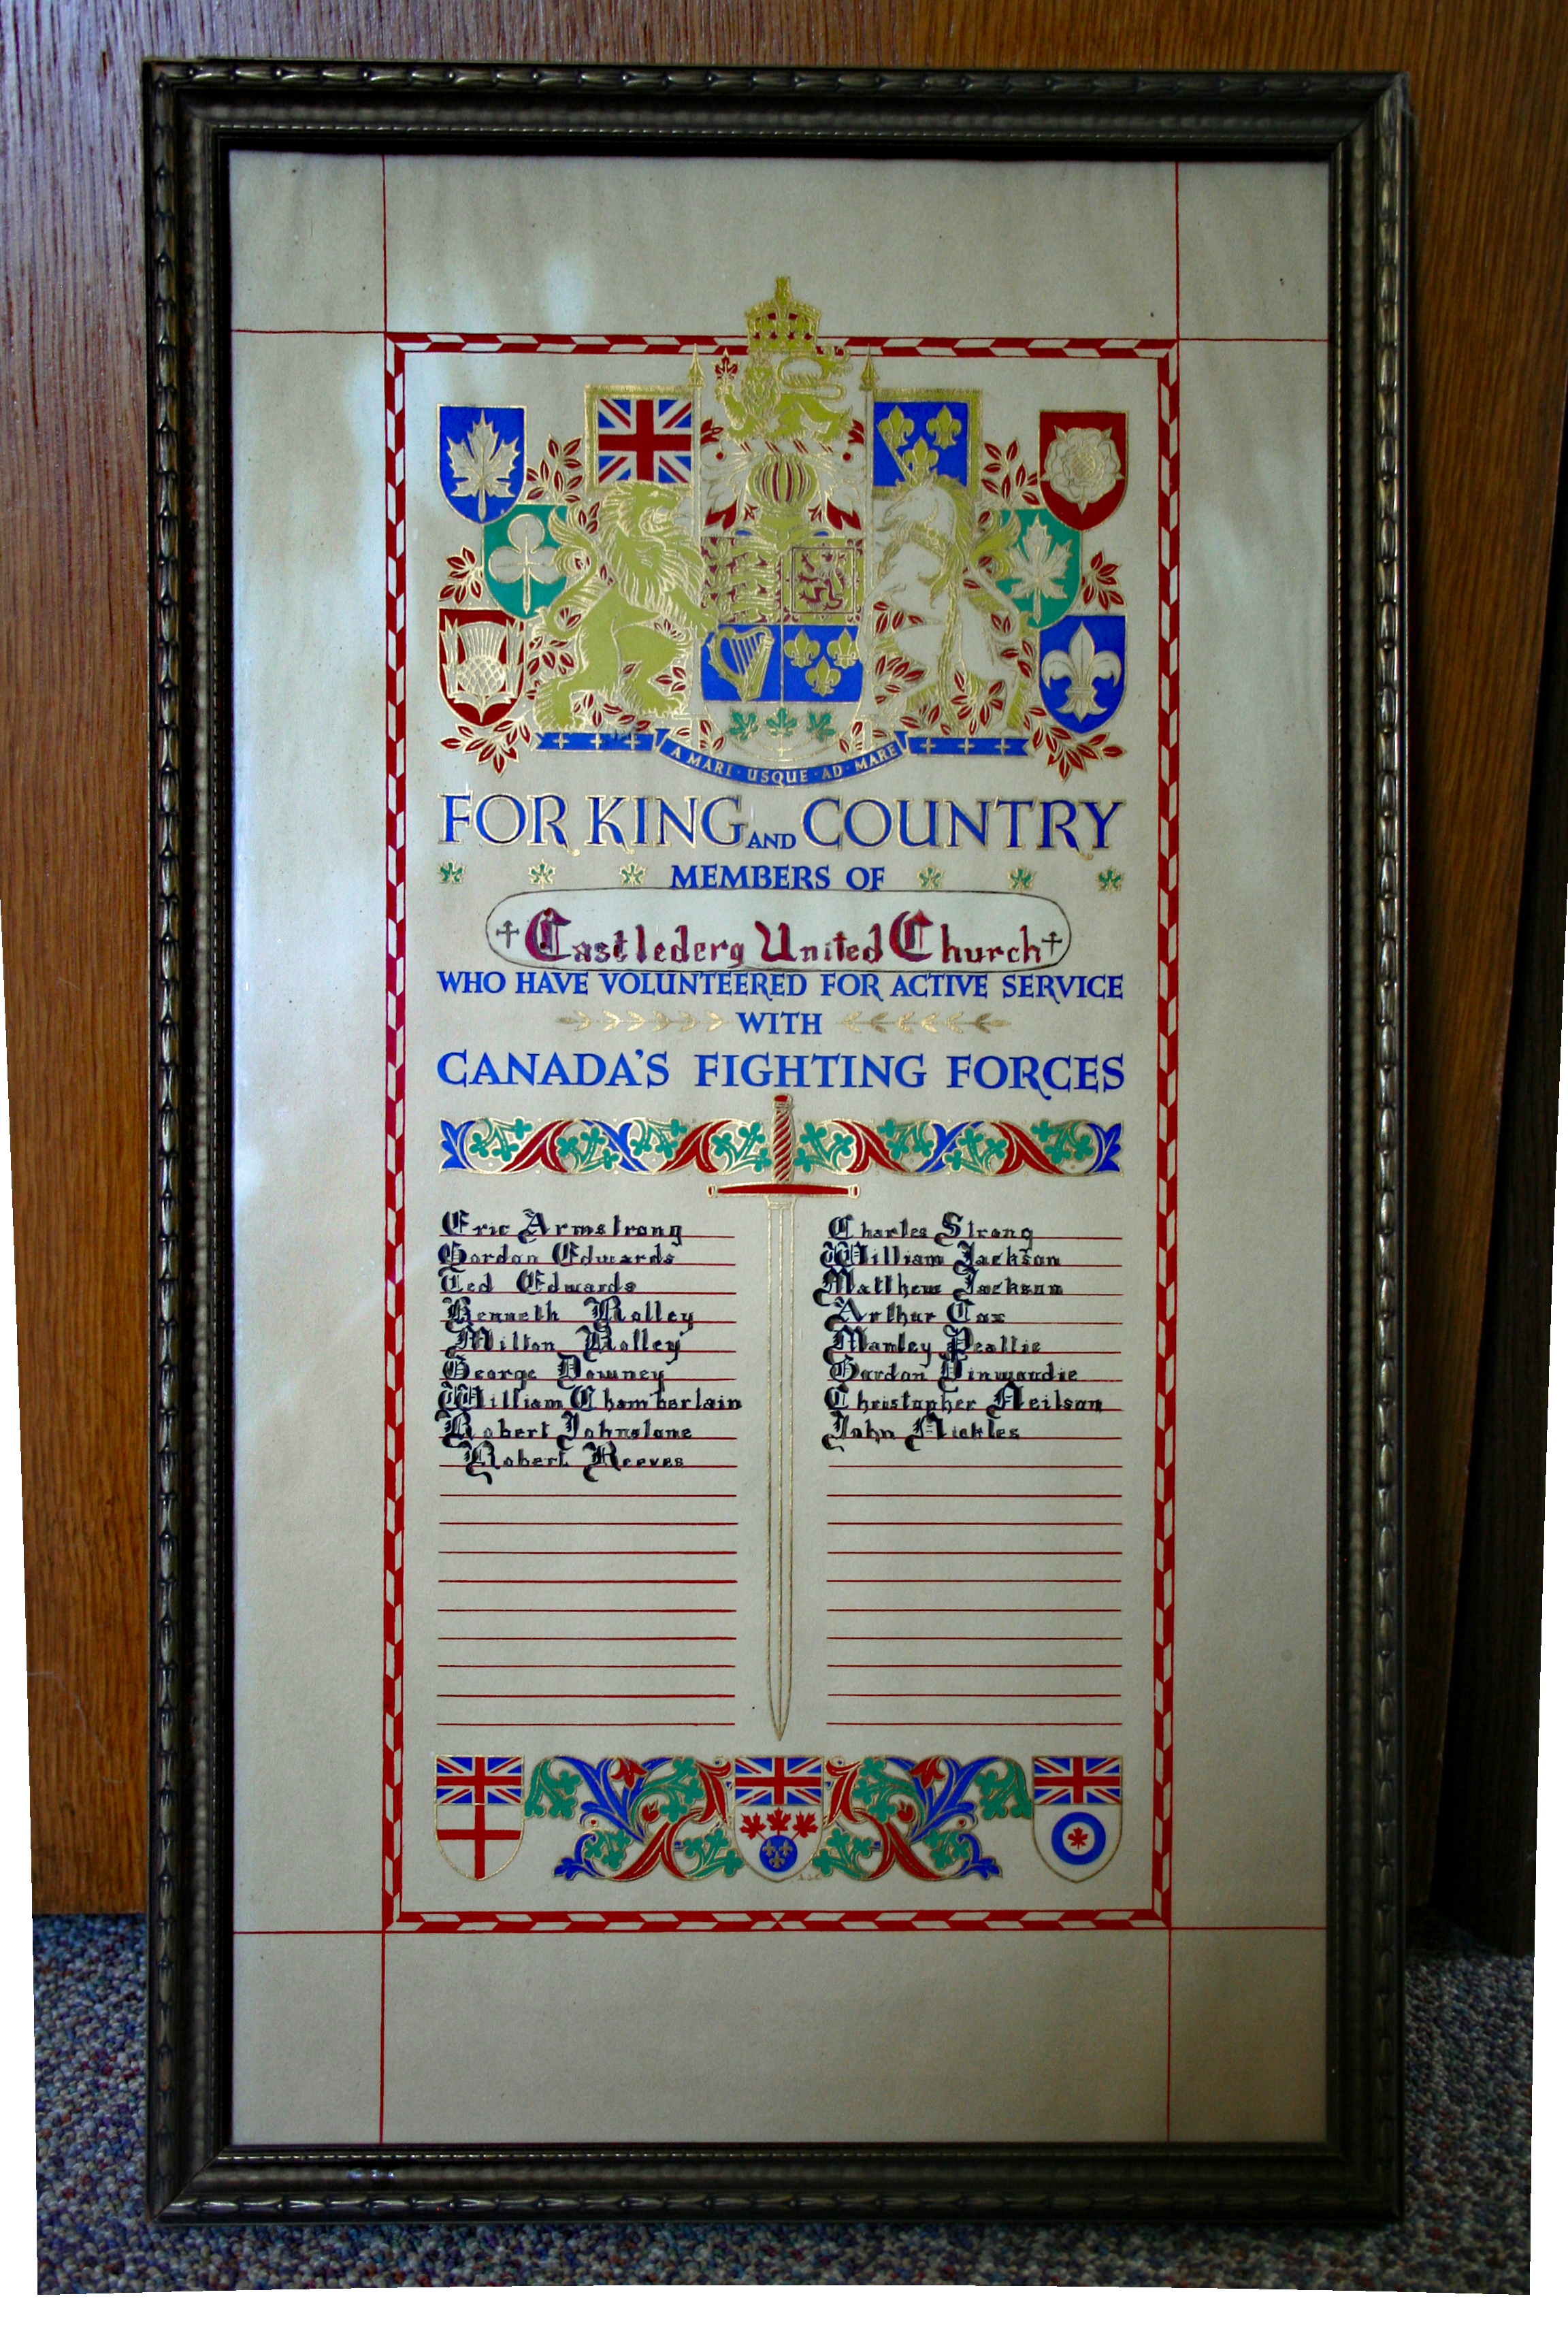 A MARI · USQUE · AD · MARE
FOR KING AND COUNTRY
MEMBERS OF
Castlederg United Church
WHO HAVE VOLUNTEERED FOR ACTIVE SERVICE
WITH
CANADA'S FIGHTING FORCES
Eric Armstrong
Gordon Edwards
Ted Edwards
Kenneth Rolley
Milton Rolley
George Downey
William Chamberlain
Robert Johnstone
Robert Reeves
Charles Strong
William Jackson
Matthew Jackson
Arthur Cox
Manley
Gordon Dinwoodie
Christopher Neilson
John Nickles